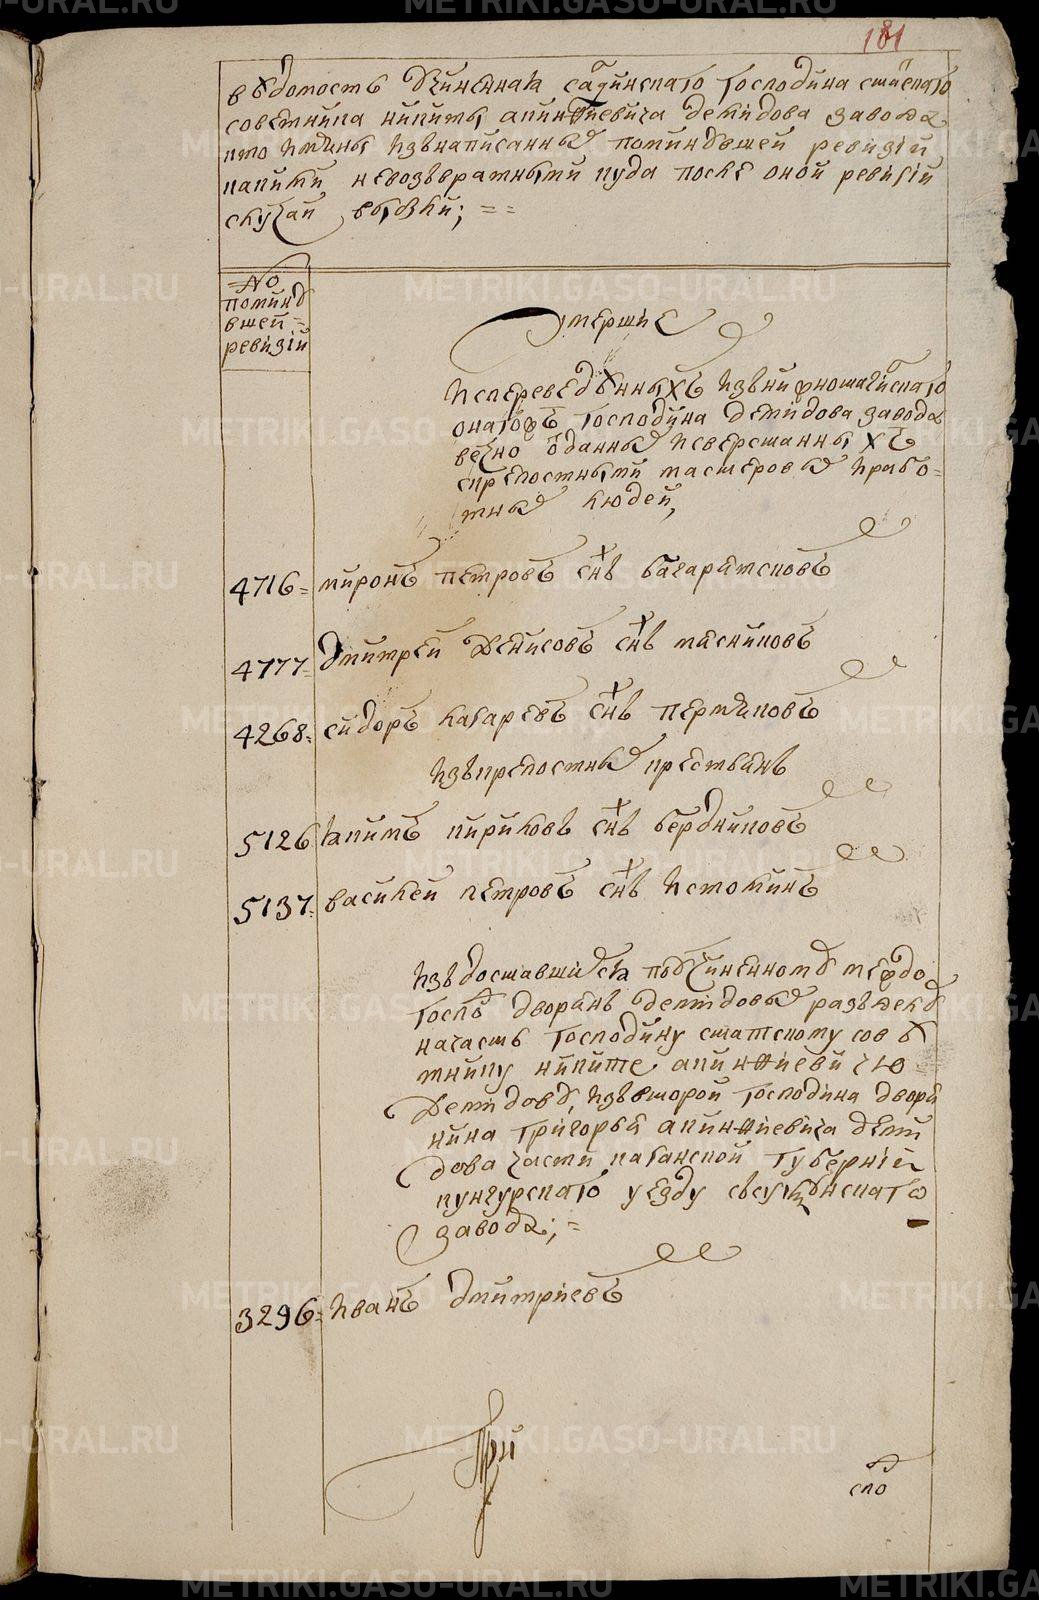 181
ведомость учиненная салдинского господина статского
советника никиты акинфиевича демидова завода
кто имяны изънаписанных поминувшей ревизии
какими невозвратными куда после оной ревизии
случаи выбыли; = =
No
поминувшей
ревизии
умершие
исперевѣденныхъ изънижношайтанского
онагожъ господина демидова завода
вечно отданных иневерстанныхъ
скрепостными мастеровых ирабо=
тных людей,
4716= миронъ петровъ снъ багарятсковъ
4777= дмитрей денисовъ снъ мясниковъ
4268= сидоръ лазаревъ снъ пермяковъ
изъкрепостных крестьянъ
5126 якимъ кириловъ снъ бердниковъ
5137= василей петровъ снъ истоминъ
изъдоставшихся поучиненному между
господ дворянъ демидовых разделу
начасть господину статскому советнику никите акинфиевичю
демидову, изъвторой господина дворянина григорья акинфиевича демидова части казанской губернии
кунгурского уезду свсуксунского
завода; =
3296= иванъ дмитриевъ
при
ско
METRIKI.GASO-URAL.RU